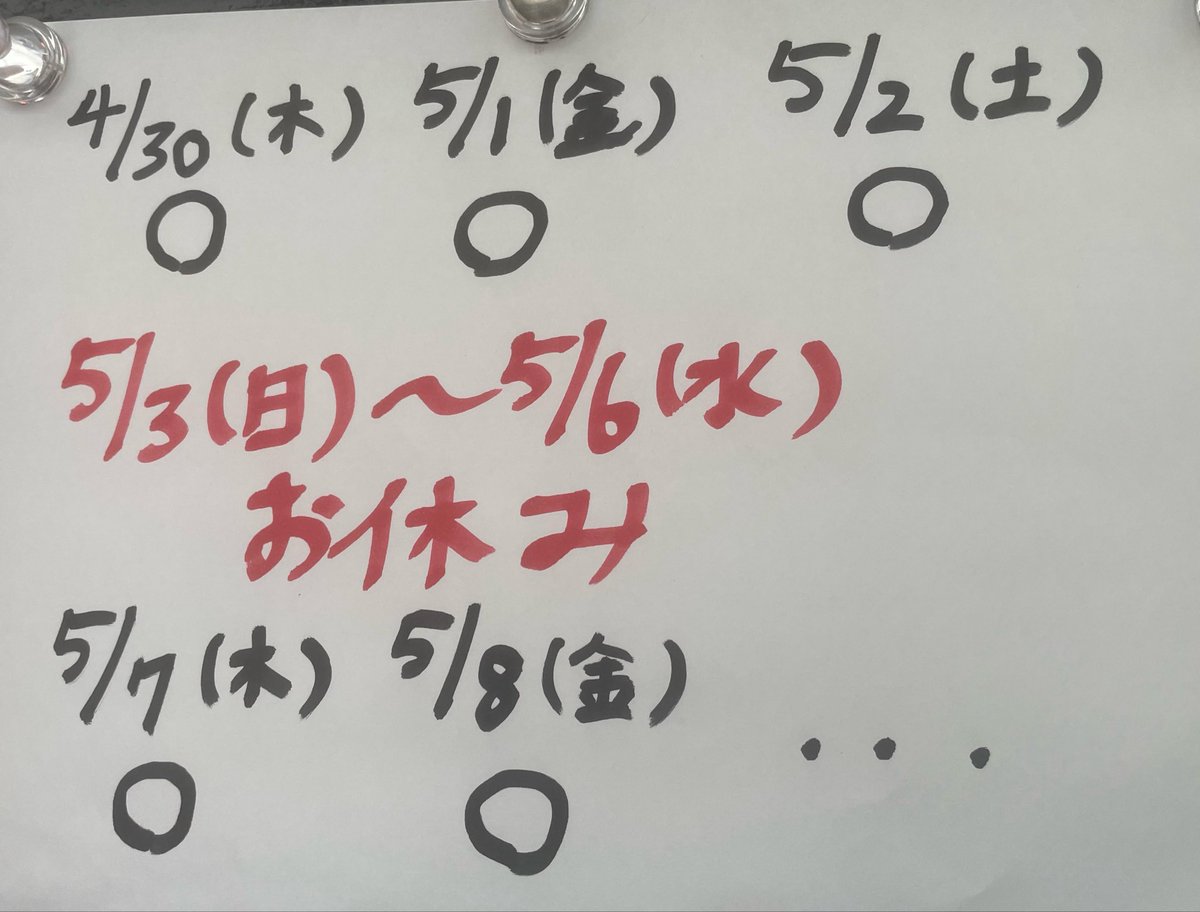 4/30(木) 5/1(金) 5/2(土)
○ ○ ○
5/3(日)〜5/6(水)
お休み
5/7(木) 5/8(金)
○ ○ ・・・